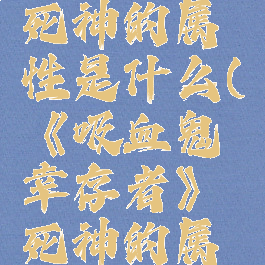 死神的属
性是什么(
《吸血鬼
幸存者》
死神的属